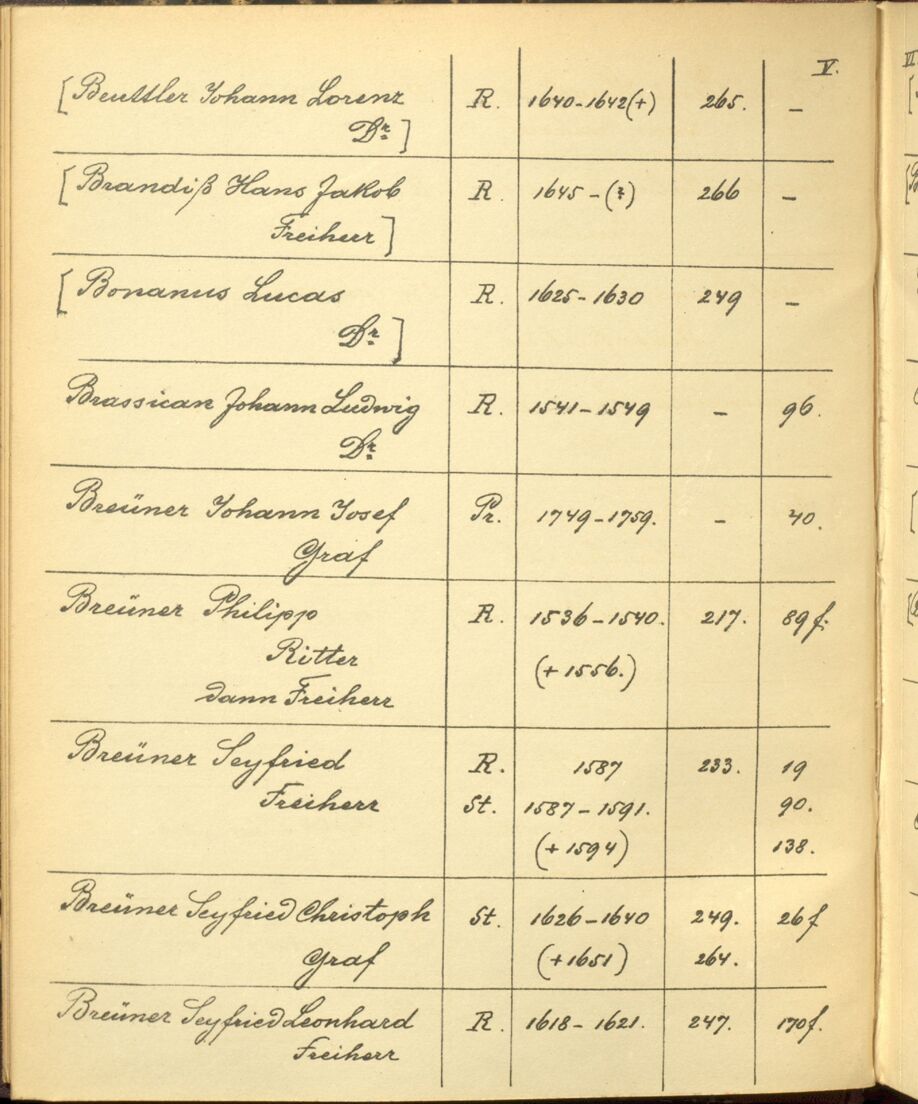 V.
[Beuttler Johann Lorenz R. 1640-1642(+) 265. –
Dr.]
[Brandiß Hans Jakob R. 1645 - (?) 266 –
Freiherr]
[Bonanus Lucas R. 1625-1630 249 –
Dr.]
Brassican Johann Ludwig R. 1541-1549 – 96.
Dr.
Breüner Johann Josef Pr. 1749-1759. – 40.
Graf
Breüner Philipp R. 1536-1540. 217. 89f.
Ritter (+ 1556.)
dann Freiherr
Breüner Seyfried R. 1587 233. 19
Freiherr St. 1587-1591. 90.
(+ 1594) 138.
Breüner Seyfried Christoph St. 1626-1640 249. 26f
Graf (+1651) 264.
Breüner Seyfried Leonhard R. 1618-1621. 247. 170f.
Freiherr